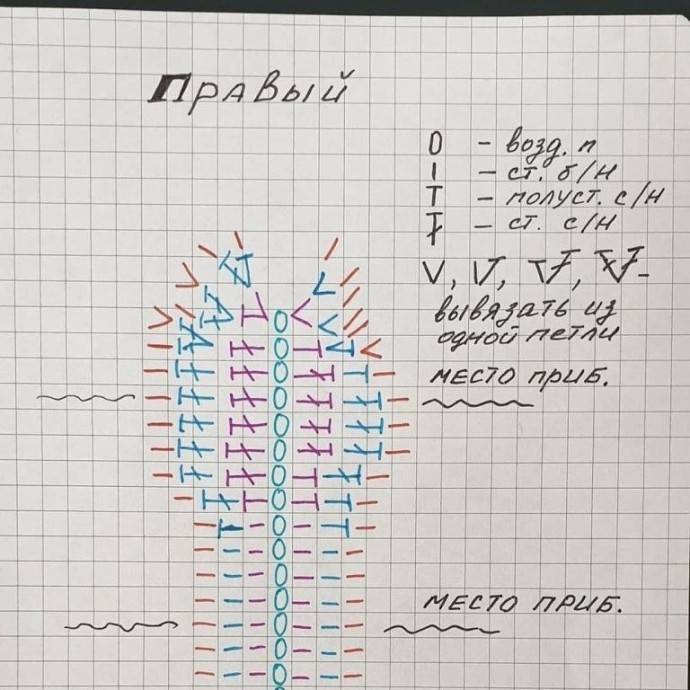 Правый
O - возд. п
I - ст. б/н
T - полуст. с/н
Ŧ - ст. с/н
V, V, V, V -
вывязать из
одной петли
место приб.
место приб.